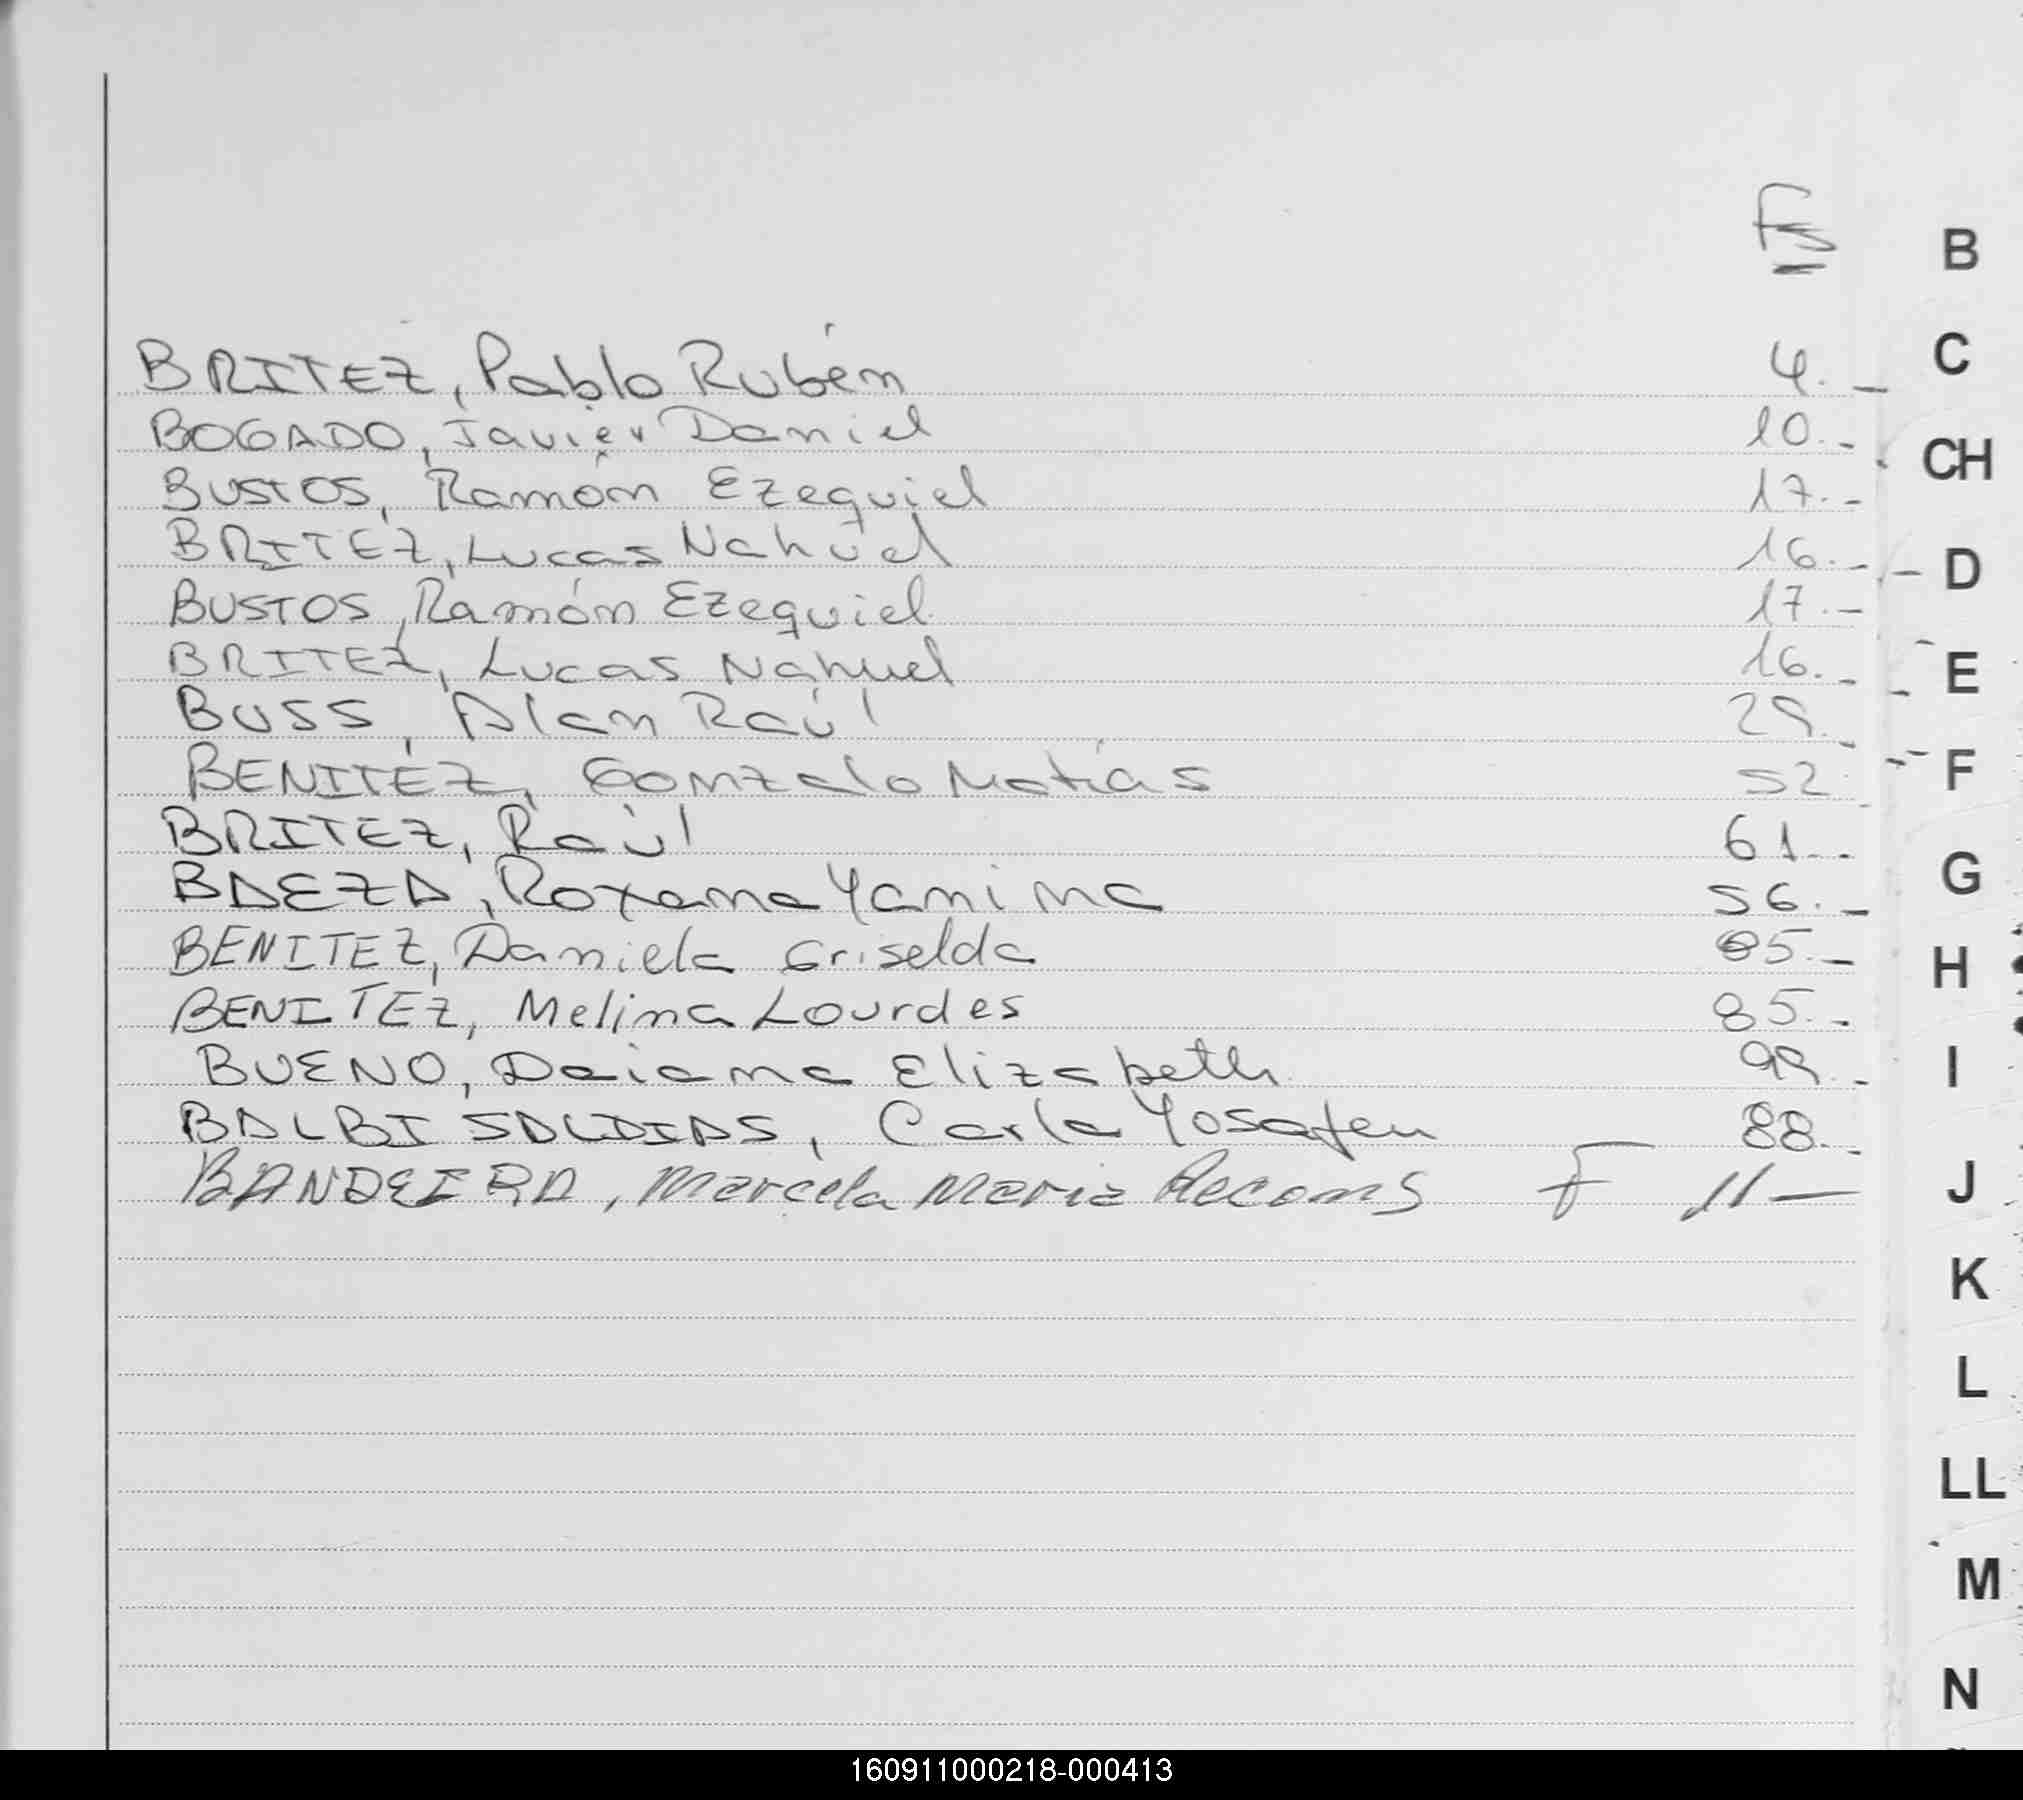 Fs
B
BRITEZ, Pablo Rubén 4.-
C
BOGADO, Javier Daniel 10.-
CH
BUSTOS, Ramón Ezequiel 17.-
BRITEZ, Lucas Nahuel 16.-
D
BUSTOS, Ramón Ezequiel 17.-
BRITEZ, Lucas Nahuel 16.-
E
BUSS, Alan Raúl 29.-
BENITEZ, Gonzalo Matías 52.-
F
BRITEZ, Raúl 61.-
G
BAEZA, Roxana Yanina 56.-
BENITEZ, Daniela Griselda 85.-
H
BENITEZ, Melina Lourdes 85.-
BUENO, Daiana Elizabeth 99.-
I
BALBI SALDIAS, Carla 88.-
BANDEIRA, Marcela Maria F 11-
J
K
L
LL
M
N
160911000218-000413